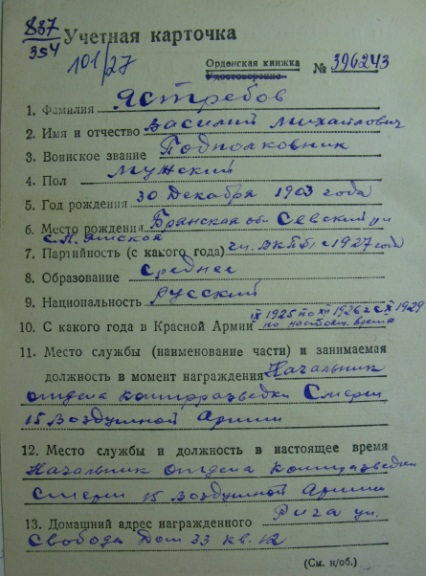 837
354 Учетная карточка
101/27 Орденская книжка
Удостоверение № 396243
1. Фамилия Ястребов
2. Имя и отчество Василий Михайлович
3. Воинское звание Подполковник
4. Пол Мужской
5. Год рождения 30 Декабря 1903 года
6. Место рождения Брянская об. Севский
с. Ямская
7. Партийность (с какого года) чл. ВКП/б/ с 1927 года
8. Образование Среднее
9. Национальность Русский
10. С какого года в Красной Армии IX 1925 по XI 1926 и с X 1929
по настоящ. время
11. Место службы (наименование части) и занимаемая
должность в момент награждения Начальник
отдела контрразведки Смерш
15 Воздушной Армии
12. Место службы и должность в настоящее время
Начальник отдела контрразведки
Смерш 15 Воздушной Армии
13. Домашний адрес награжденного Рига ул.
Свобода Дом 33 кв. 12
(См. н/об.)